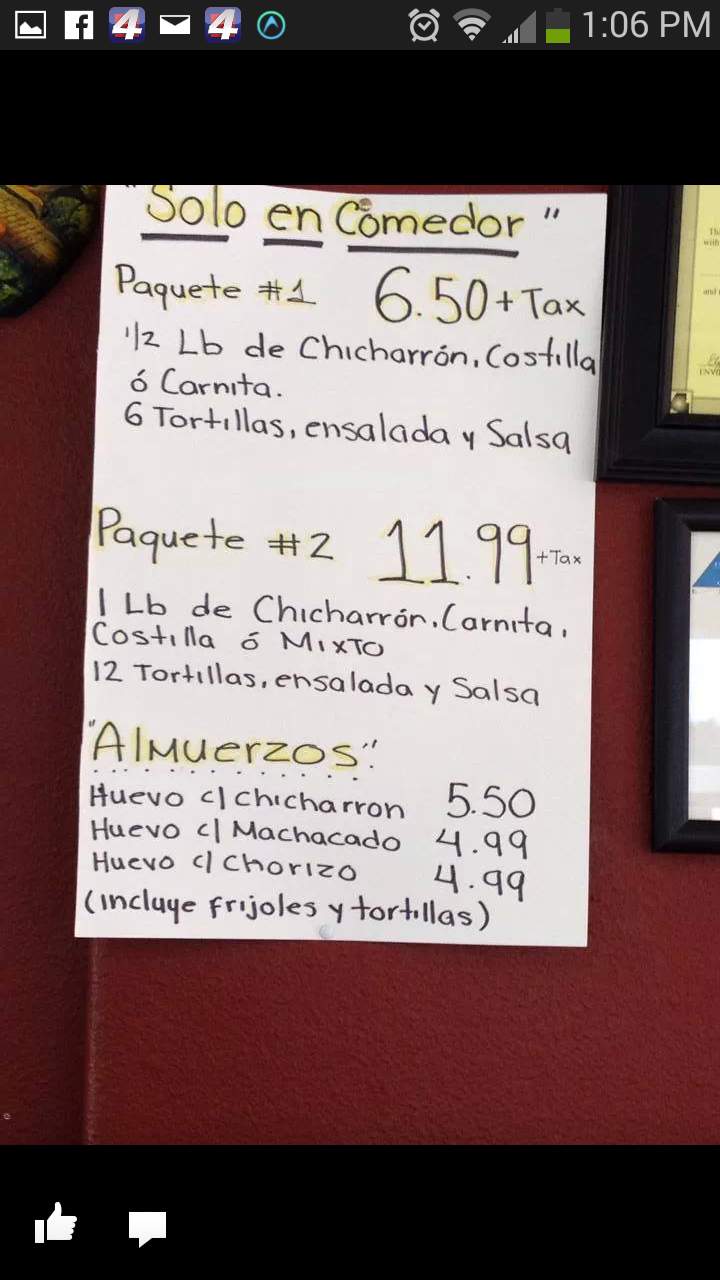 1:06 PM
"Solo en Comedor"
Paquete #1 6.50 + Tax
1/2 Lb de Chicharrón, Costilla
ó Carnita.
6 Tortillas, ensalada y Salsa
Paquete #2 11.99 +Tax
1 Lb de Chicharrón, Carnita,
Costilla ó Mixto
12 Tortillas, ensalada y Salsa
"Almuerzos"
Huevo c/ chicharron 5.50
Huevo c/ Machacado 4.99
Huevo c/ chorizo 4.99
(incluye frijoles y tortillas)